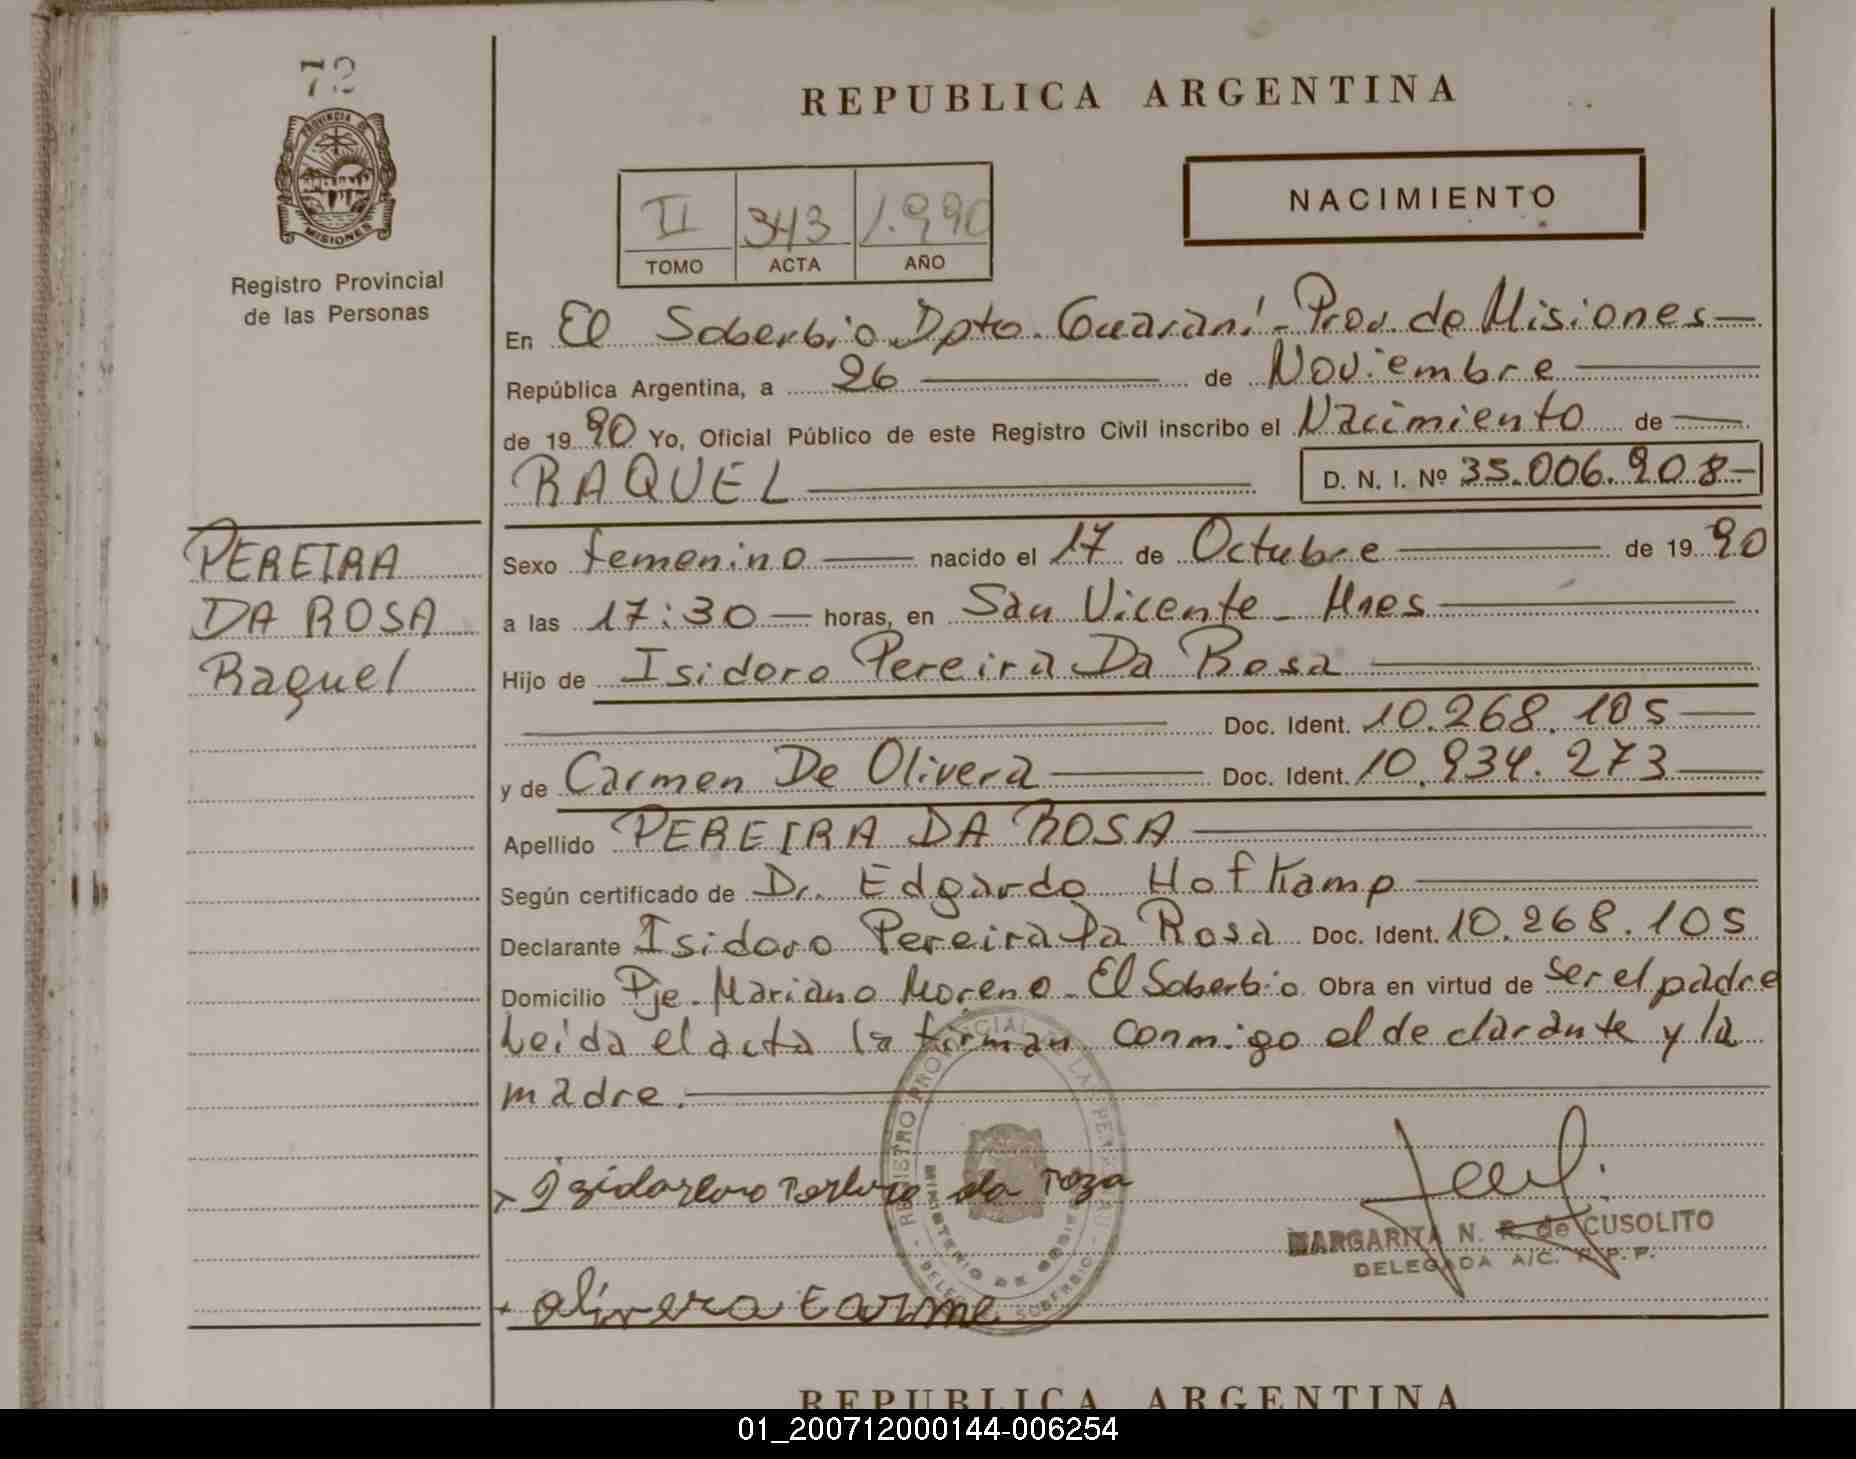 72
PROVINCIA DE
MISIONES
Registro Provincial
de las Personas
REPUBLICA ARGENTINA
NACIMIENTO
II 343 1.990
TOMO ACTA AÑO
En El Soberbio Dpto. Guaraní - Prov. de Misiones —
República Argentina, a 26 — de Noviembre —
de 19 90 Yo, Oficial Público de este Registro Civil inscribo el Nacimiento de —
RAQUEL — D. N. I. Nº 35.006.908-
PEREIRA
DA ROSA
Raquel
Sexo femenino — nacido el 17 de Octubre — de 19 90
a las 17:30 — horas, en San Vicente - Mnes —
Hijo de Isidoro Pereira Da Rosa —
Doc. Ident. 10.268.105 —
y de Carmen De Olivera — Doc. Ident. 10.934.273 —
Apellido PEREIRA DA ROSA —
Según certificado de Dr. Edgardo Hofkamp —
Declarante Isidoro Pereira Da Rosa Doc. Ident. 10.268.105
Domicilio Pje. Mariano Moreno - El Soberbio Obra en virtud de ser el padre
Leida el acta la firman conmigo el declarante y la
madre. —
da roza
olivera carme
REGISTRO PROVINCIAL DE LAS PERSONAS
MINISTERIO DE GOBIERNO
SOBERBIO
MARGARITA N. R. de CUSOLITO
DELEGADA A/C. R.P.P.
REPUBLICA ARGENTINA
01_200712000144-006254